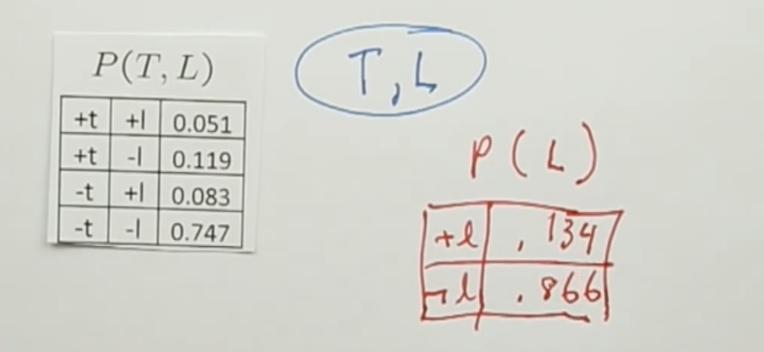 P(T, L)
+t +l 0.051
+t -l 0.119
-t +l 0.083
-t -l 0.747
T, L
P(L)
+l .134
¬l .866